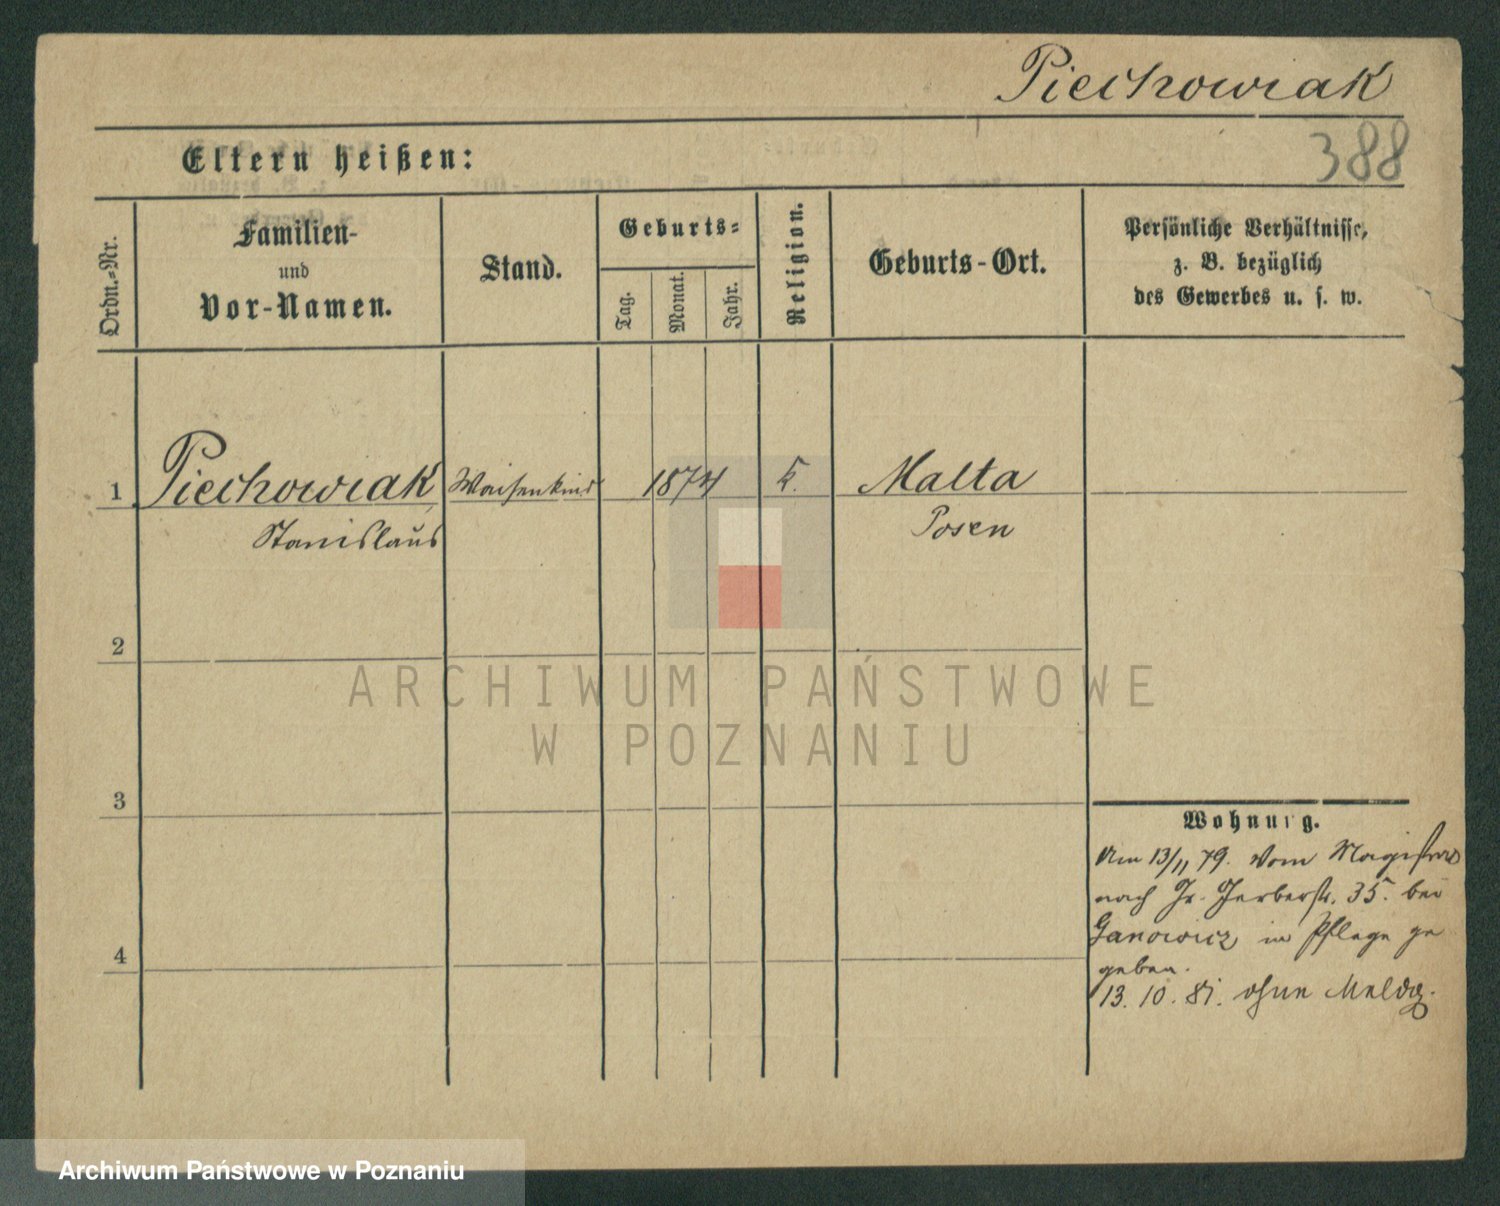 Piechowiak
388
Eltern heißen:
Ordn.-Nr.
Familien-
und
Vor-Namen.
Stand.
Geburts-
Tag.
Monat.
Jahr.
Religion.
Geburts-Ort.
Persönliche Verhältnisse,
z. B. bezüglich
des Gewerbes u. s. w.
1 Piechowiak Waisenkind 1874 k. Malta
Stanislaus Posen
2
ARCHIWUM PAŃSTWOWE
W POZNANIU
3
Wohnung.
Am 13/11 79. vom Magistrat
nach Gr. Gerberstr. 35. bei
Ganowicz in Pflege ge
geben.
4
13. 10. 81. ohne Meldg.
Archiwum Państwowe w Poznaniu